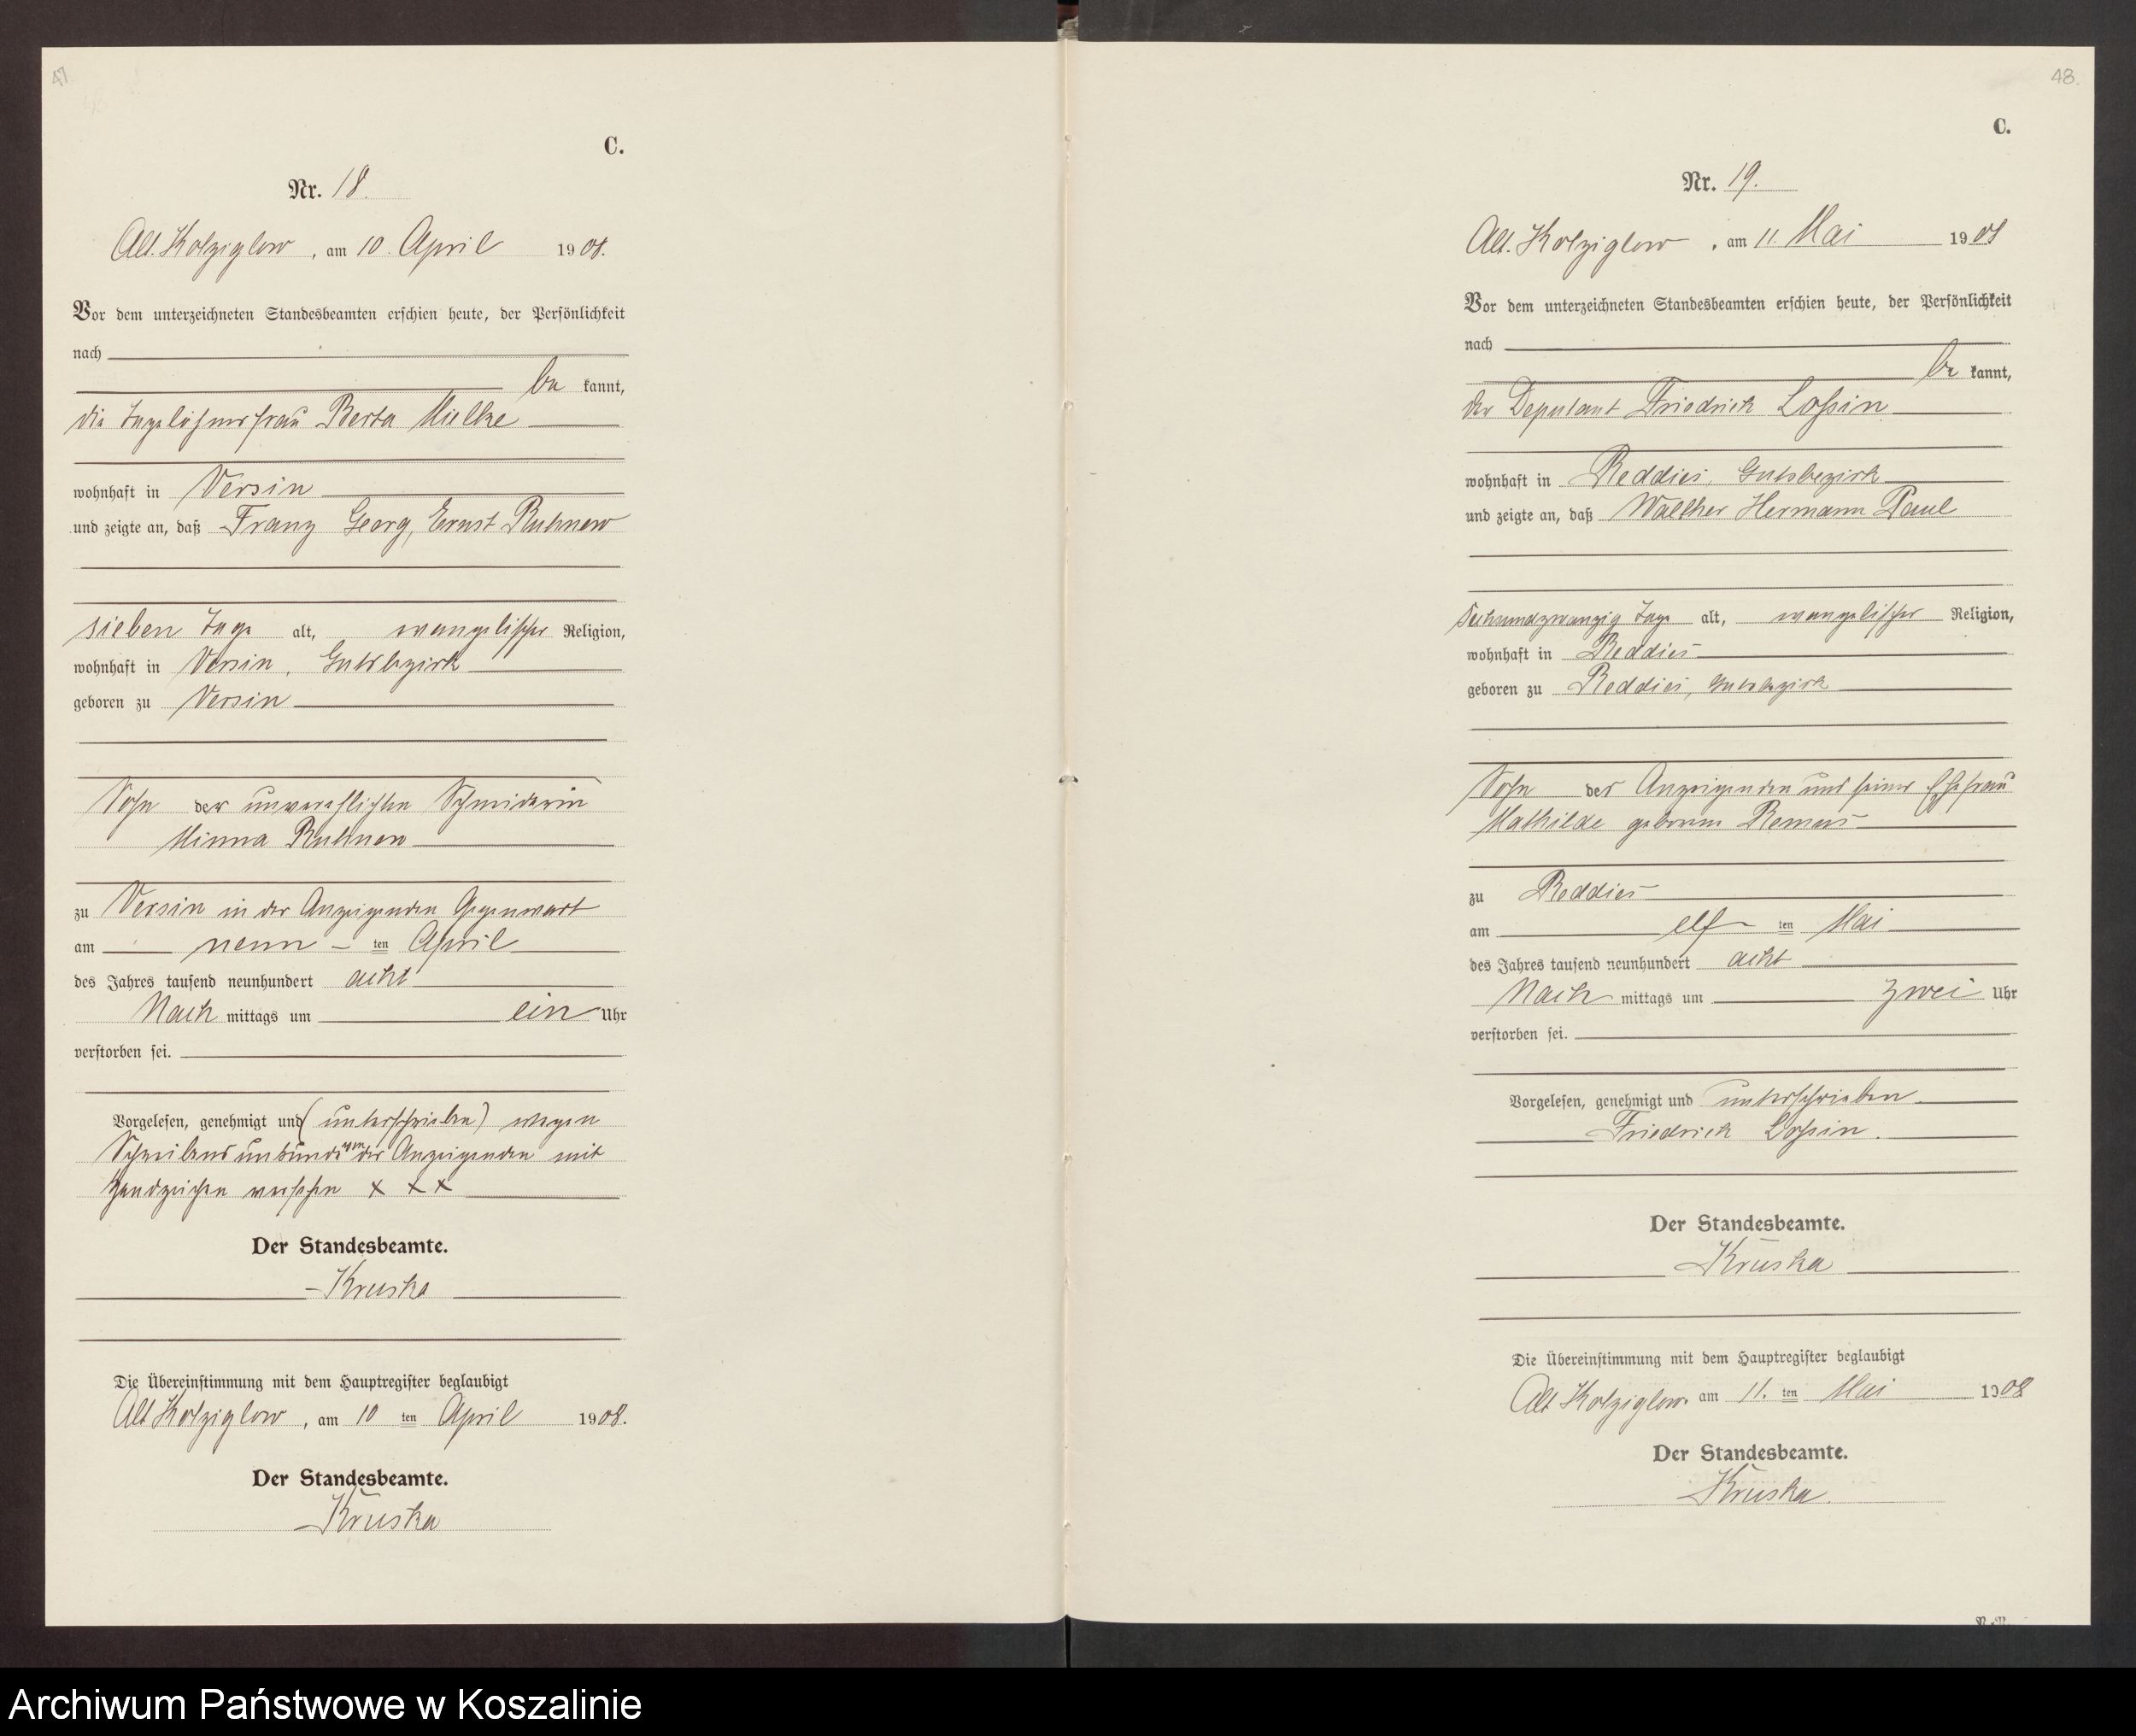 47.
C.
Nr. 18.
Alt. Kolziglow, am 10. April 1908.
Vor dem unterzeichneten Standesbeamten erschien heute, der Persönlichkeit
nach
be kannt,
die Tagelöhnerfrau Berta Mielke
wohnhaft in Versin
und zeigte an, daß Franz Georg, Ernst Ruhnow
sieben Tage alt, evangelischer Religion,
wohnhaft in Versin, Gutsbezirk
geboren zu Versin
Sohn der unverehlichten Schneiderin
Minna Ruhnow
zu Versin in der Anzeigenden Gegenwart
am neun ten April
des Jahres tausend neunhundert acht
Nach mittags um ein Uhr
verstorben sei.
Vorgelesen, genehmigt und (unterschrieben) wegen
Schreibensunkunde von der Anzeigenden mit
Handzeichen versehen x x x
Der Standesbeamte.
Kruska
Die Übereinstimmung mit dem Hauptregister beglaubigt
Alt Kolziglow, am 10 ten April 1908.
Der Standesbeamte.
Kruska
48.
C.
Nr. 19.
Alt. Kolziglow, am 11. Mai 1908
Vor dem unterzeichneten Standesbeamten erschien heute, der Persönlichkeit
nach
be kannt,
der Deputant Friedrich Loßin
wohnhaft in Reddies, Gutsbezirk
und zeigte an, daß Walther Hermann Paul
Sechsundzwanzig Tage alt, evangelischer Religion,
wohnhaft in Reddies
geboren zu Reddies, Gutsbezirk
Sohn des Anzeigenden und seiner Ehefrau
Mathilde geborene Remus
zu Reddies
am elf ten Mai
des Jahres tausend neunhundert acht
Nach mittags um zwei Uhr
verstorben sei.
Vorgelesen, genehmigt und unterschrieben
Friedrich Loßin.
Der Standesbeamte.
Kruska
Die Übereinstimmung mit dem Hauptregister beglaubigt
Alt Kolziglow am 11. ten Mai 1908
Der Standesbeamte.
Kruska.
Archiwum Państwowe w Koszalinie